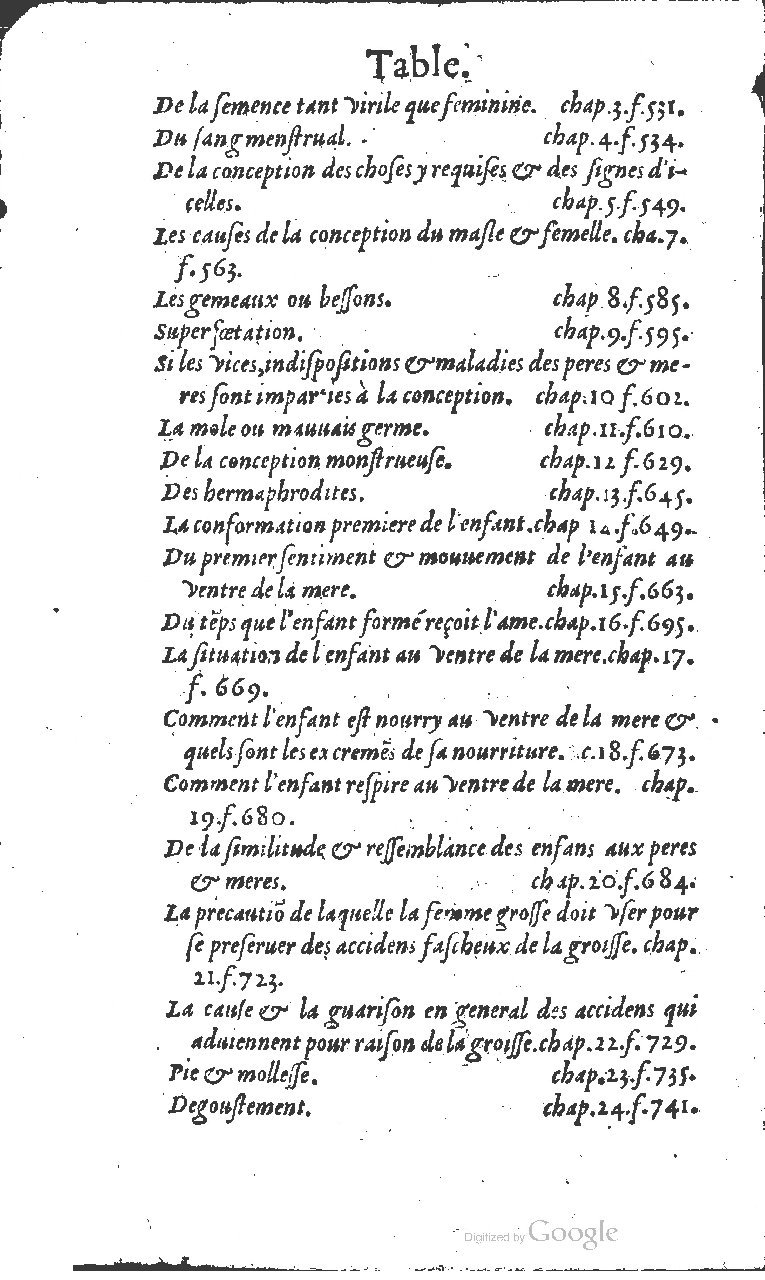 Table.
De la ſemence tant virile que feminine. chap.3.f.531.
Du ſang menſtrual. chap.4.f.534.
De la conception des choſes y requiſes & des ſignes d'i-
celles. chap.5.f.549.
Les cauſes de la conception du maſle & femelle. cha.7.
f.563.
Les gemeaux ou beſſons. chap 8.f.585.
Superfœtation. chap.9.f.595.
Si les vices, indiſpoſitions & maladies des peres & me-
res ſont imparties à la conception. chap.10 f.602.
La mole ou mauuais germe. chap.11.f.610.
De la conception monſtrueuſe. chap.12 f.629.
Des hermaphrodites. chap.13.f.645.
La conformation premiere de l'enfant.chap 14.f.649.
Du premier ſentiment & mouuement de l'enfant au
ventre de la mere. chap.15.f.663.
Du tẽps que l'enfant formé reçoit l'ame.chap.16.f.695.
La ſituation de l'enfant au ventre de la mere.chap.17.
f. 669.
Comment l'enfant eſt nourry au ventre de la mere &
quels ſont les excremẽs de ſa nourriture. c.18.f.673.
Comment l'enfant reſpire au ventre de la mere. chap.
19.f.680.
De la ſimilitude & reſſemblance des enfans aux peres
& meres. chap.20.f.684.
La precautiõ de laquelle la femme groſſe doit vſer pour
ſe preſeruer des accidens faſcheux de la groiſſe. chap.
21.f.723.
La cauſe & la guariſon en general des accidens qui
aduiennent pour raiſon de la groiſſe.chap.22.f.729.
Pie & molleſſe. chap.23.f.735.
Degouſtement. chap.24.f.741.
Digitized by Google